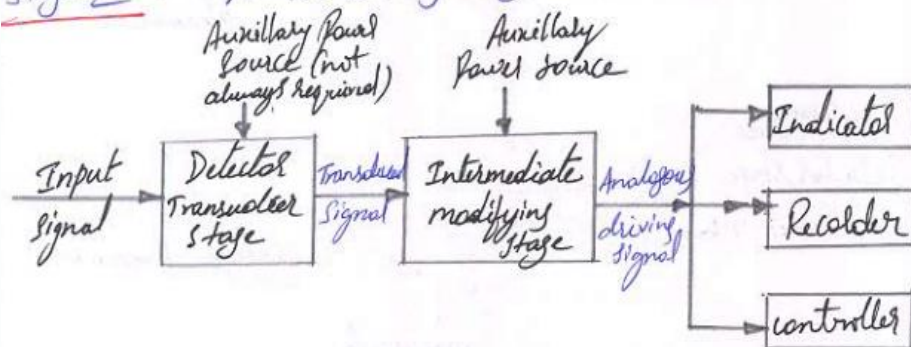 Auxillary Power
Source (not
always required)
Auxillary
Power Source
Input
Signal
Detector
Transducer
Stage
Transduced
Signal
Intermediate
modifying
Stage
Analogous
driving
Signal
Indicator
Recorder
controller